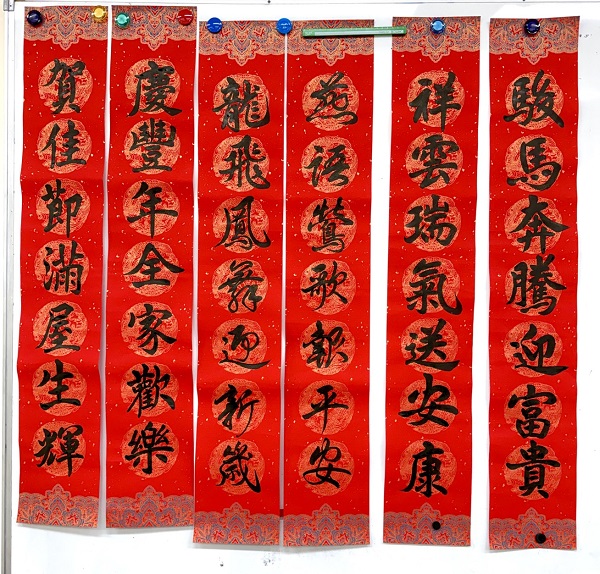 駿馬奔騰迎富貴
祥雲瑞氣送安康
燕語鶯歌報平安
龍飛鳳舞迎新歲
慶豐年全家歡樂
賀佳節滿屋生輝